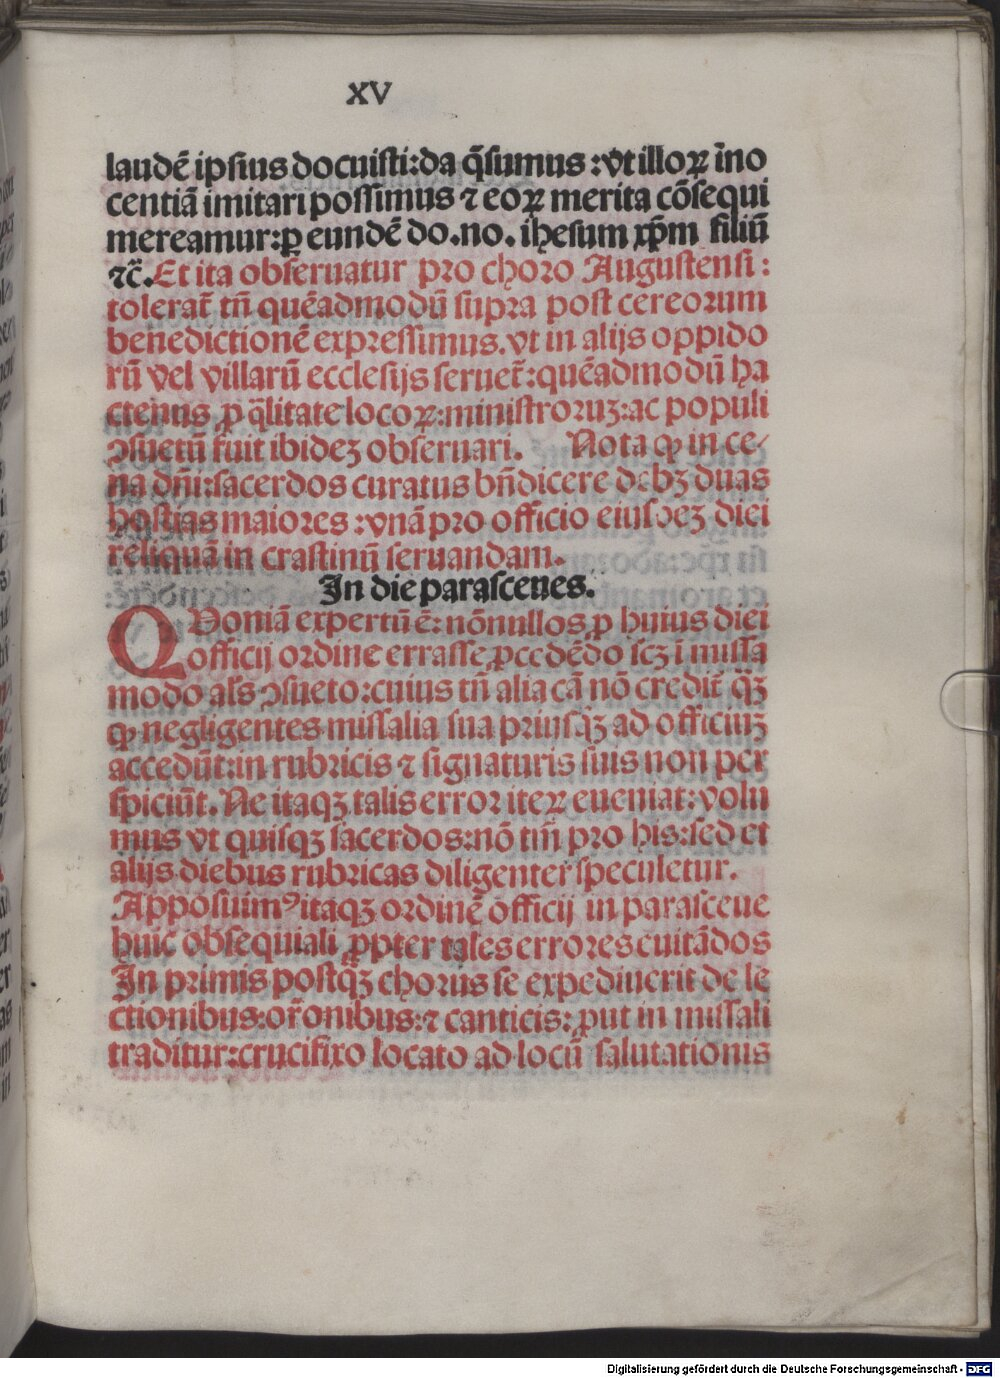 XV
laudē ipsius docuisti:da q̄sumus :vt illoꝝ īno
centiā imitari possimus ⁊ eoꝝ merita cōsequi
mereamur:ꝑ eundē do.no. ihesum xp̄m filiū
⁊c̄.Et ita obseruatur pro choro Augustensi:
tolerat̄ tn̄ quēadmodū supra post cereorum
benedictionē expressimus.vt in alijs oppido
rū vel villarū ecclesijs seruet̄:quēadmodū ha
ctenus ꝓ q̄litate locoꝝ:ministroruꝫ:ac populi
ꝯsuetū fuit ibideꝫ obseruari. Nota ꝙ in ce⸗
na dn̄i:sacerdos curatus bn̄dicere debꝫ duas
hostias maiores :vnā pro officio eiusdeꝫ diei
reliquā in crastinū seruandam.
In die parasceues.
QVoniā expertū ē: nōnullos ꝓ huius diei
officij ordine errasse ꝓcedēdo scꝫ ī missa
modo als ꝯsueto:cuius tn̄ alia cā nō credit̄ q̄ꝫ
ꝙ negligentes missalia sua priusqꝫ ad officiuꝫ
accedūt:in rubricis ⁊ signaturis suis non per
spiciūt. Ne itaqꝫ talis error iteꝝ eueniat:volu
mus vt quisqꝫ sacerdos:nō tm̄ pro his:sed et
alijs diebus rubricas diligenter speculetur.
Apposuimꝰ itaqꝫ ordinē officij in parasceue
huic obsequiali ꝓpter tales errores euitādos
In primis postq̄ꝫ chorus se expediuerit de le
ctionibus:or̄onibus:⁊ canticis: ꝓut in missali
traditur:crucifixo locato ad locū salutationis
Digitalisierung gefördert durch die Deutsche Forschungsgemeinschaft - DFG